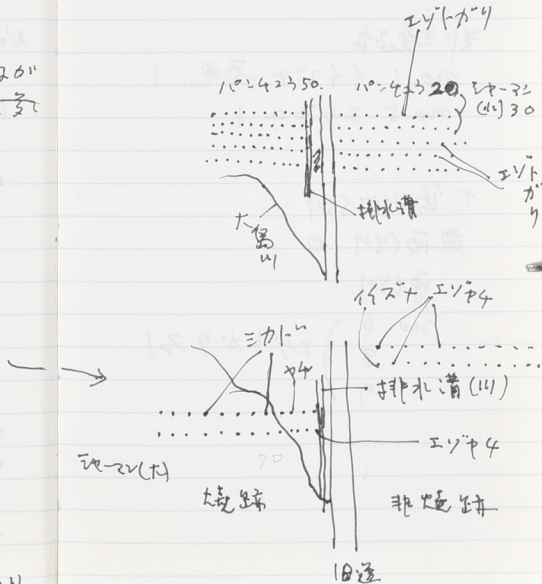 エゾトガリ
パンチュウ50.
パンチュウ20
シャーマン
(小)30
エゾト
ガ
リ
排水溝
大
島
川
イイズナ
エゾヤチ
ミカド
ヤチ
排水溝(川)
エゾヤチ
シャーマン(大)
焼跡
非焼跡
旧道